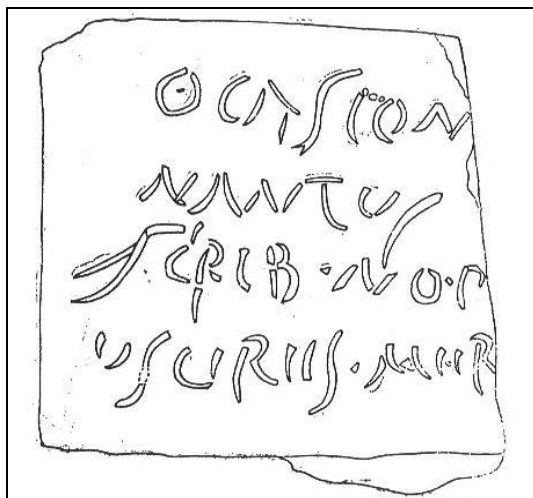 OCASION
NANTUS
SCRIB·NO·
USURIIS·MIIR